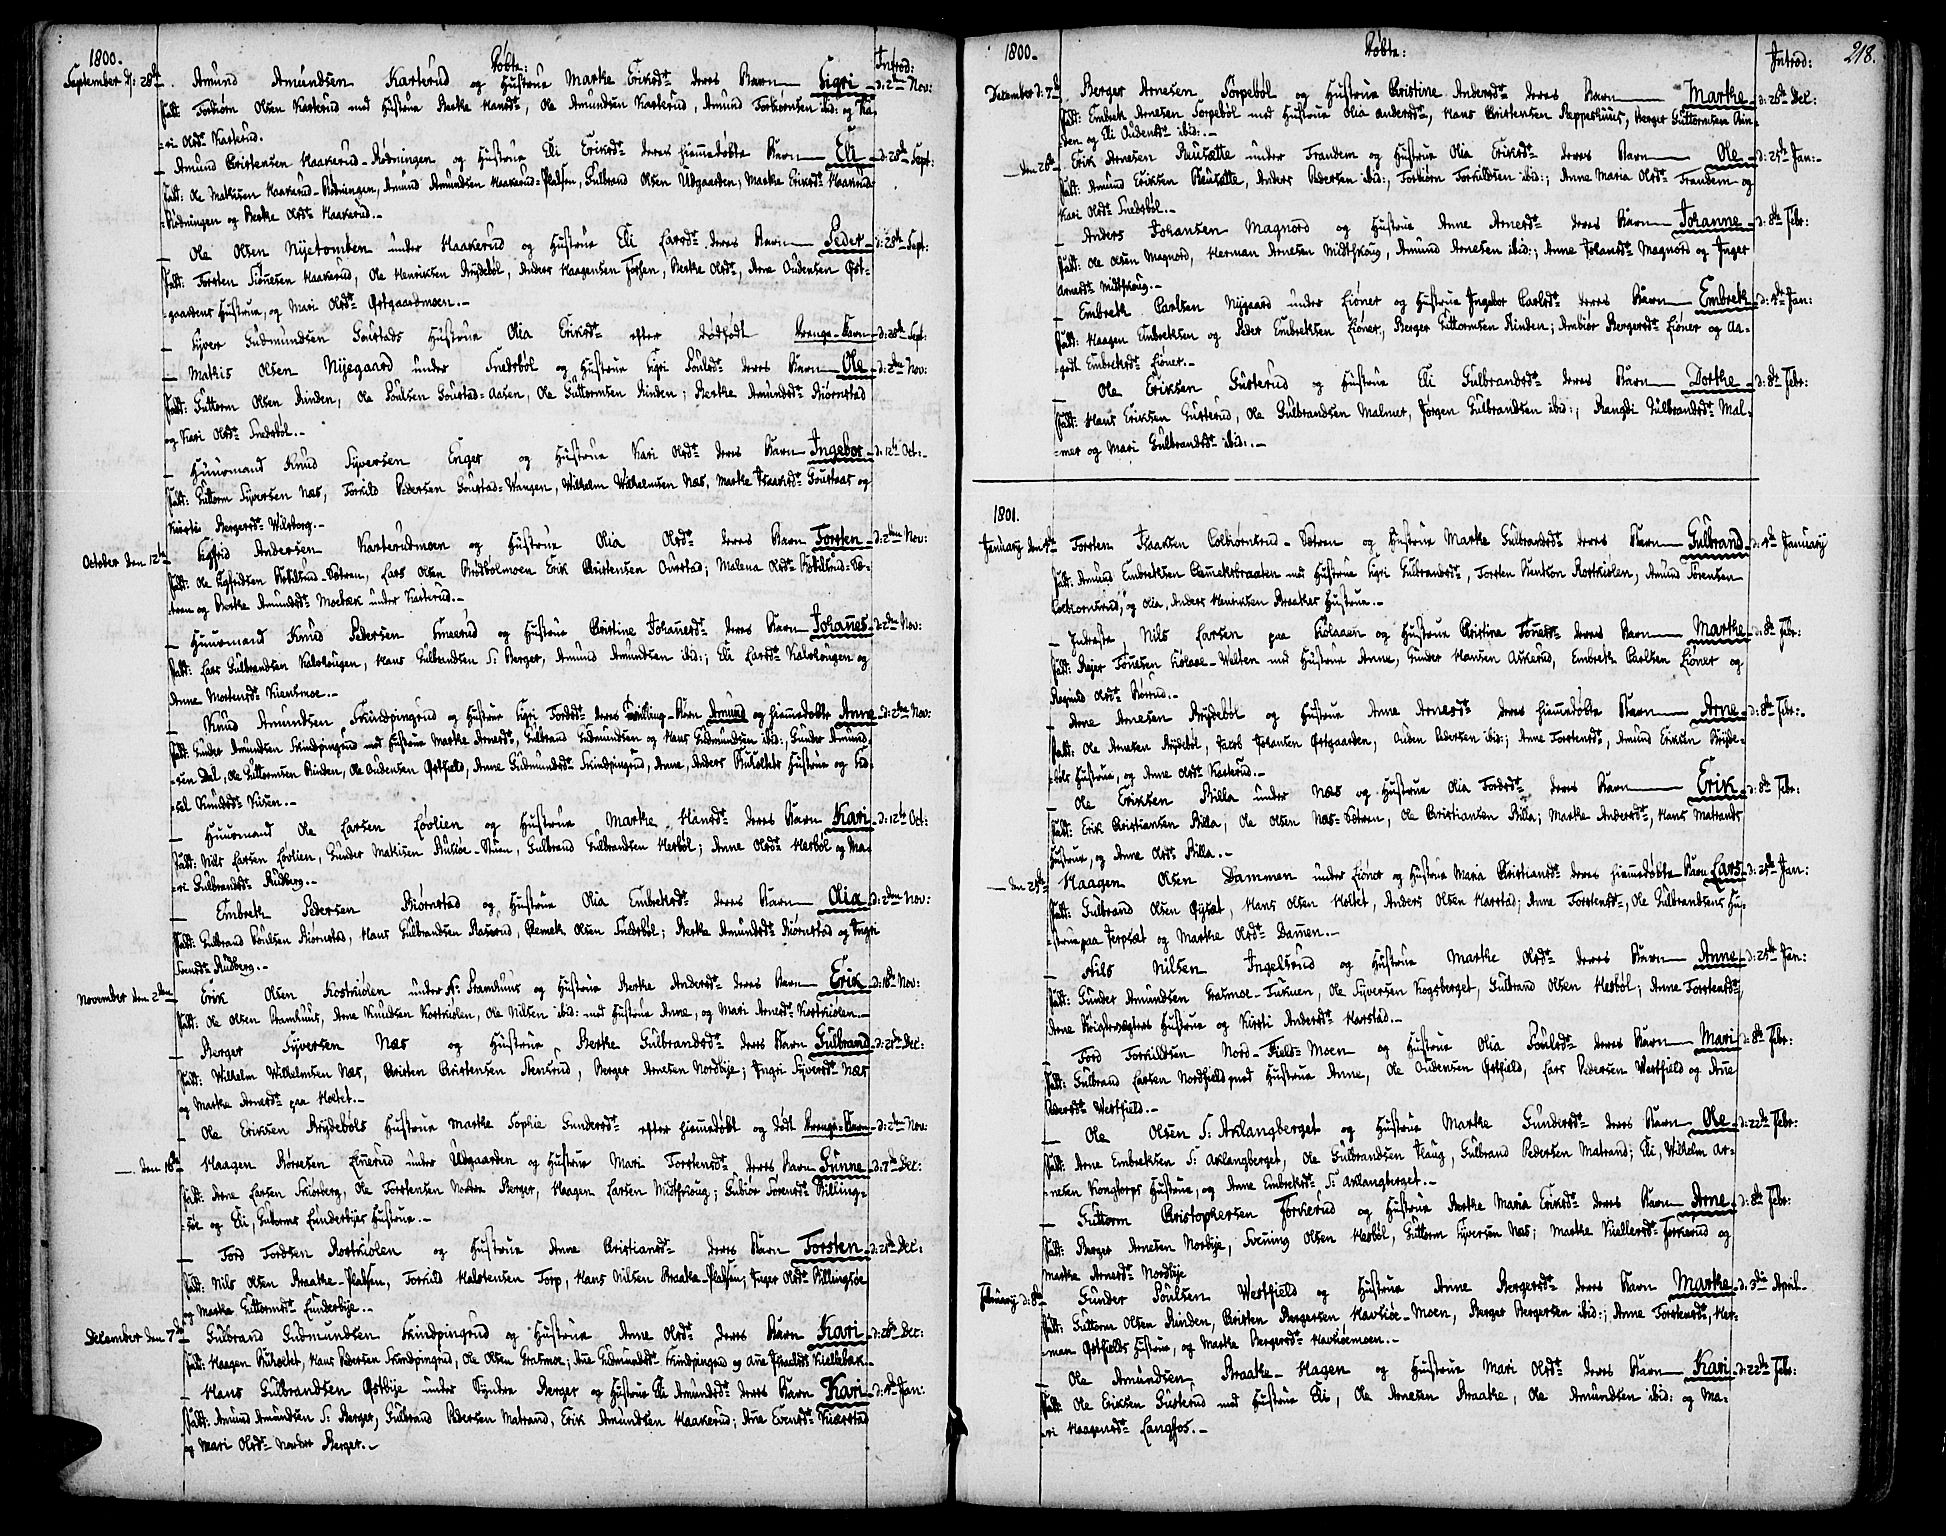 1800. Døbte: Introd:
September d: 28de Amund Amundsen Karterud og Hustrue Marthe Eriksdr deres Barn Sigri d: 2den Nov:
Fadd: Torbiørn Olsen Karterud med Hustrue Berthe Hansdr, Ole Amundsen Karterud, Amund Torbiørnsen ibid: og Ka-
-ri Olsdr Karterud.
Amund Christensen Haakerud-Rødningen og Hustrue Eli Eriksdr deres hiemmedøbte Barn Eli d: 28de Sept:
Fadd: Ole Mathisen Haakerud-Rødningen, Amund Amundsen Haakerud-Pladsen, Gulbrand Olsen Udgaarden, Marthe Eriksdr Haakerud-
-Rødningen og Berthe Olsdr Haakerud.
Ole Olsen Nyetomten under Haakerud og Hustrue Eli Larsdr deres Barn Peder d: 28de Sept:
Fadd: Torsten Haakerud, Ole Henriksen Brydebøl, Anders Haagensen, Berthe Olsdr, Arne Oudensen Øst-
-gaardens Hustrue, og Mari Olsdr Østgaardmoen.
Syver Gudmundsen Goustads Hustrue Olia Eriksdr efter dødfødt Drenge-Barn d: 28de Sept:
Mathis Olsen Nyegaard under Snedsbøl og Hustrue Sigri Poulsdr deres Barn Ole d: 2den Nov:
Fadd: Guttorm Olsen Rinden, Ole Poulsen Goustad-Aasen, Ole Guttormsen Rinden; Berthe Amundsdr Biørnstad
og Kari Olsdr Snedsbøl.
Huusmand Knud Syversen Enger og Hustrue Kari Olsdr deres Barn Ingebor d: 12te Oct:
Fadd: Guttorm Syversen Næs, Torkild Pedersen Goustad-Vangen, Wilhelm Wilhelmsen Næs, Marthe Isaksdr Goustad og
Kirsti Bergersdr Wilsberg.
October den 12te Sigfrid Andersen Karterudmoen og Hustrue Olia Olsdr deres Barn Torsten d: 2den Nov:
Fadd: Ole Sigfridsen -Sætren, Lars Olsen Brødbølmoen Erik Christensen Ourstad; Malena Olsdr -Sæ-
-tren og Berthe Amundsdr Moebæk under Karterud.
Huusmand Knud Pedersen Smeerud og Hustrue Christine Johansdr deres Barn Johannes d: 2den Nov:
Fadd: Lars Gulbrandsen Kalvhougen, Hans Gulbrandsen S: Berger, Amund Amundsen ibid:; Eli Larsdr Kalvhougen og
Anne Mortensdr Kiensmoe.
Knud Amundsen Skindpingrud og Hustrue Sigri Tordsdr deres Tvilling-Børn Amund og hiemmedøbte Anne d: 2den Nov:
Fadd: Gunder Amundsen Skindpingrud med Hustrue Marthe Arnesdr, Gulbrand Gudmundsen og Hans Gudmundsen ibid:, Gunder Amund-
-sen Dal, Ole Guttormsen Rinden, Ole Oudensen Østfield, Anne Gudmundsdr Skindpingrud, Anne, Anders Buholtets Hustrue og Sid-
-sel Knudsdr.
Huusmand Ole Larsen Løvlien og Hustrue Marthe Hansdr deres Barn Kari d: 12te Oct:
Fadd: Nils Larsen Løvlien, Gunder Mathisen -Stuen, Gulbrand Gulbrandsen Hesbøl; Anne Olsdr Hesbøl og Ma-
-ri Gulbrandsdr Rudberg.
Embreth Pedersen Biørnstad og Hustrue Olia Embrethsdr deres Barn Olia d: 2den Nov:
Fadd: Gulbrand Poulsen Biørnstad, Hans Gulbrandsen Raserud, Clemet Olsen Snedsbøl; Berthe Amundsdr Biørnstad og Ingri
Svensdr Rudberg.
November den 2den Erik Olsen Rostkiølen under Stamhuus og Hustrue Berthe Andersdr deres Barn Erik d: 16de Nov:
Fadd: Ole Olsen Stamhuus, Arne Knudsen Rostkiølen, Ole Nilsen ibid: med Hustrue Anne, og Mari Arnesdr Rostkiølen.
Berger Syversen Næs og Hustrue Berthe Gulbrandsdr deres Barn Gulbrand d: 21de Dec:
Fadd: Wilhelm Wilhelmsen Næs, Christen Christensen Stensrud, Berger Arnesen Nordbye; Ingri Syversdr Næs
og Marthe Arnesdr paa Holtet.
Ole Eriksen Brydebøls Hustrue Marthe Sophie Gundersdr efter hiemmedøbt og dødt Drenge-Barn d: 2den Nov:
den 16de Haagen under Udgaarden og Hustrue Mari Torstensdr deres Barn Gunne d: 7de Dec:
Fadd: Arne Larsen Skiørberg, Ole Torstensen Nordre Berger, Haagen Larsen Midtskoug; Gubiør Sørensdr Billing-
-søe og Eli, Guttorms Lunderbyes Hustrue.
Tord Tordsen Rostkiølen og Hustrue Anne Christiansdr deres Barn Torsten d: 21de Dec:
Fadd: Nils Olsen Braathe-Pladsen, Torkild Halstensen Torp, Hans Nilsen Braathe-Pladsen; Inger Olsdr Billingsøe
og Marthe Guttormsdr Lunderbye.
December den 7de Gulbrand Gudmundsen Skindpingrud og Hustrue Anne Olsdr deres Barn Kari d: 26de Dec:
Fadd: Haagen Buholtet, Hans Pedersen Skindpingrud, Ole Olsen Grasmoe; Ane Gudmundsdr Skindpingrud og Ane Kiellebæk.
Hans Gulbrandsen Østbye under Syndre Berger og Hustrue Eli Amundsdr deres Barn Kari d: 4de Jan:
Fadd: Amund Amundsen S: Berger, Gulbrand Pedersen Matrand, Erik Amundsen Haakerud; Ane Evensdr
og Mari Olsdr Nordre Berger.
1800. Døbte: Introd: 218.
December d: 7de Berger Arnesen Torpebøl og Hustrue Christine Andersdr deres Barn Marthe d: 26de Dec:
Fadd: Embreth Arnesen Torpebøl med Hustrue Olia Andersdr, Hans Christensen Rapperhuus, Berger Guttormsen Rin-
-den og Eli Oudensdr ibid:
den 26de Erik Arnesen Reusætte under Trandem og Hustrue Olia Eriksdr deres Barn Ole d: 25de Jan:
Fadd: Amund Eriksen Reusætte, Anders Pedersen ibid:, Torbiørn Torkildsen ibid:; Anne Maria Olsdr Trandem og
Kari Olsdr Snedsbøl.
Anders Johansen Magnord og Hustrue Anne Arnesdr deres Barn Johanne d: 8de Febr:
Fadd: Ole Olsen Magnord, Herman Arnesen Midtskoug, Amund Arnesen ibid:; Anne Johansdr Magnord og Inger
Arnesdr Midtskoug.
Embreth Carlsen Nygaard under Liøner og Hustrue Ingebor Carlsdr deres Barn Embreth d: 4de Jan:
Fadd: Haagen Embrethsen og Peder Embrethsen Liøner, Berger Guttormsen Rinden; Ambiør Bergersdr Liøner og Aa-
-godt Embrethsdr Liøner.
Ole Eriksen Gusterud og Hustrue Eli Gulbrandsdr deres Barn Dorthe d: 8de Febr:
Fadd: Hans Eriksen Gusterud, Ole Gulbrandsen Malmer, Jørgen Gulbrandsen ibid:; Rangdi Gulbrandsdr Mal-
-mer og Mari Gulbrandsdr ibid:
1801.
January den 4de Torsten Isaksen Colbiørnsrud-Sætren og Hustrue Marthe Gulbrandsdr deres Barn Gulbrand d: 4de January
Fadd: Amund Embrethsen Clemetsbraaten med Hustrue Sigri Gulbrandsdr, Torsten Rostkiølen, Amund Sørensen
Colbiørnsrud, og Olia, Anders Henriksen Braathes Hustrue.
Inderste Nils Larsen paa Kiølaaen og Hustrue Christine Tønesdr deres Barn Marthe d: 8de Febr:
Fadd: Tønesen -Welten med Hustrue Anne, Gunder Hansen Askerud, Embreth Carlsen Liøner og
Olsdr Børrud.
Arne Arnesen Brydebøl og Hustrue Anne Arnesdr deres hiemmedøbte Barn Arne d: 8de Febr:
Fadd: Ole Arnesen Brydebøl, Jacob Johansen Østgaarden, Ouden Pedersen ibid:; Anne Torstensdr, Amund Eriksen Bryde-
-bøls Hustrue, og Anne Olsdr Karterud.
Ole Eriksen Billa under Næs og Hustrue Olia Tordsdr deres Barn Erik d: 8de Febr:
Fadd: Erik Christiansen Billa, Ole Olsen Næs-Sætren, Ole Christiansen Billa; Marthe Andersdr, Hans Matrands
Hustrue, og Anne Olsdr Billa.
den 25de Haagen Olsen Dammen under Liøner og Hustrue Maria Christiansdr deres hiemmedøbte Barn Lars d: 25de Jan:
Fadd: Gulbrand Olsen Øysæt, Hans Olsen Holtet, Anders Olsen Harstad; Anne Torstensdr, Ole Gulbrandsens Hu-
-strue paa Jerpsæt og Marthe Olsdr Dammen.
Nils Nilsen Ingelsrud og Hustrue Marthe Olsdr deres Barn Anne d: 25de Jan:
Fadd: Gunder Amundsen Grasmoe-, Ole Syversen Kogsberget, Gulbrand Olsen Hesbøl; Anne Torstensdr,
Arne Hustrue og Kirsti Andersdr Harstad.
Tord Torkildsen Nord-Field-Moen og Hustrue Olia Poulsdr deres Barn Mari d: 8de Febr:
Fadd: Gulbrand Larsen Nordfield med Hustrue Anne, Ole Oudensen Østfield, Lars Pedersen Westfield og Ane
Pedersdr Westfield.
Ole Olsen S: Aklangberget og Hustrue Marthe Gundersdr deres Barn Ole d: 22de Febr:
Fadd: Arne Embrethsen S: Aklangberget, Ole Gulbrandsen Flaug, Gulbrand Pedersen Matrand; Eli, Wilhelm Ar-
-nesen Kongtorps Hustrue, og Anne Embrethsdr S: Aklangberget.
Guttorm Christophersen Torkerud og Hustrue Berthe Maria Eriksdr deres Barn Arne d: 8de Febr:
Fadd: Berger Arnesen Norbye, Svening Olsen Hesbøl, Guttorm Syversen Næs; Marthe Kiellersdr Torkerud og
Marthe Arnesdr Nordbye
February d: 8de Gunder Poulsen Westfield og Hustrue Anne Bergersdr deres Barn Marthe d: 3die April
Fadd: Guttorm Olsen Rinden, Christen Bergersen Havsiøe-Moen, Berger Bergersen ibid:; Anne Torstensdr, Her-
-man Østfields Hustrue, og Marthe Bergersdr Havsiøemoen.
Ole Amundsen Braathe-Hagen og Hustrue Mari Olsdr deres Barn Kari d: 22de Febr:
Fadd: Ole Eriksen Gusterud med Hustrue Eli, Ole Arnesen Braathe, Ole Amundsen ibid: og Ma-
-ri Haagensdr Langfos.